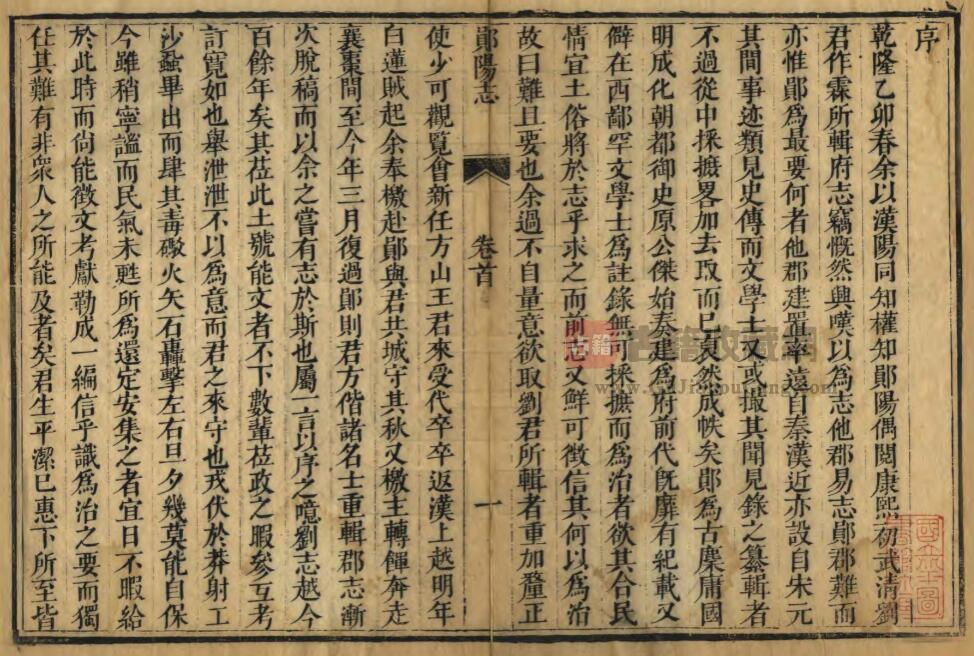 序
乾隆乙卯春余以漢陽同知權知鄖陽偶閱康熙初武清劉
君作霖所輯府志竊慨然興嘆以為志他郡易志鄖郡難而
亦惟鄖為最要何者他郡建置率遠自秦漢近亦設自宋元
其間事迹類見史傳而文學士又或撮其聞見錄之纂輯者
不過從中採摭畧加去取而已裒然成帙矣鄖為古麇庸國
明成化朝都御史原公傑始奏建為府前代旣靡有紀載又
僻在西鄙罕文學士為註錄無可採摭而為治者欲其合民
情宜土俗將於志乎求之而前志又鮮可徵信其何以為治
故曰難且要也余過不自量意欲取劉君所輯者重加釐正
鄖陽志
卷首
一
使少可觀覽會新任方山王君來受代卒卒返漢上越明年
白蓮賊起余奉檄赴鄖與君共城守其秋又檄主轉餫奔走
襄棗間至今年三月復過鄖則君方偕諸名士重輯郡志漸
次脫稿而以余之嘗有志於斯也屬一言以序之噫劉志越今
百餘年矣其莅此土號能文者不下數輩莅政之暇參互考
訂寬如也舉泄泄不以為意而君之來守也戎伏於莽射工
沙蝨畢出而肆其毒礮火矢石轟擊左右旦夕幾莫能自保
今雖稍寧謐而民氣未甦所為還定安集之者宜日不暇給
於此時而尙能徵文考獻勒成一編信乎識為治之要而獨
任其難有非衆人之所能及者矣君生平潔巳惠下所至皆
古籍
古籍收藏網